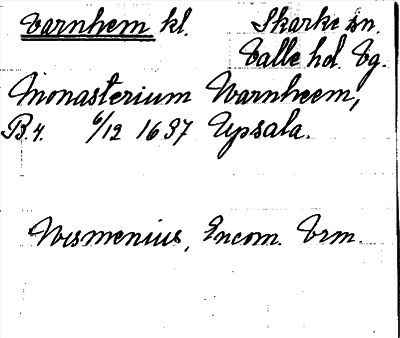 Varnhem kl. Skarke sn.
Valle hd. Vg.
Monasterium Warnheem,
B.4. 6/12 1637 Upsala.
Wismenius, Encom. Vrm.